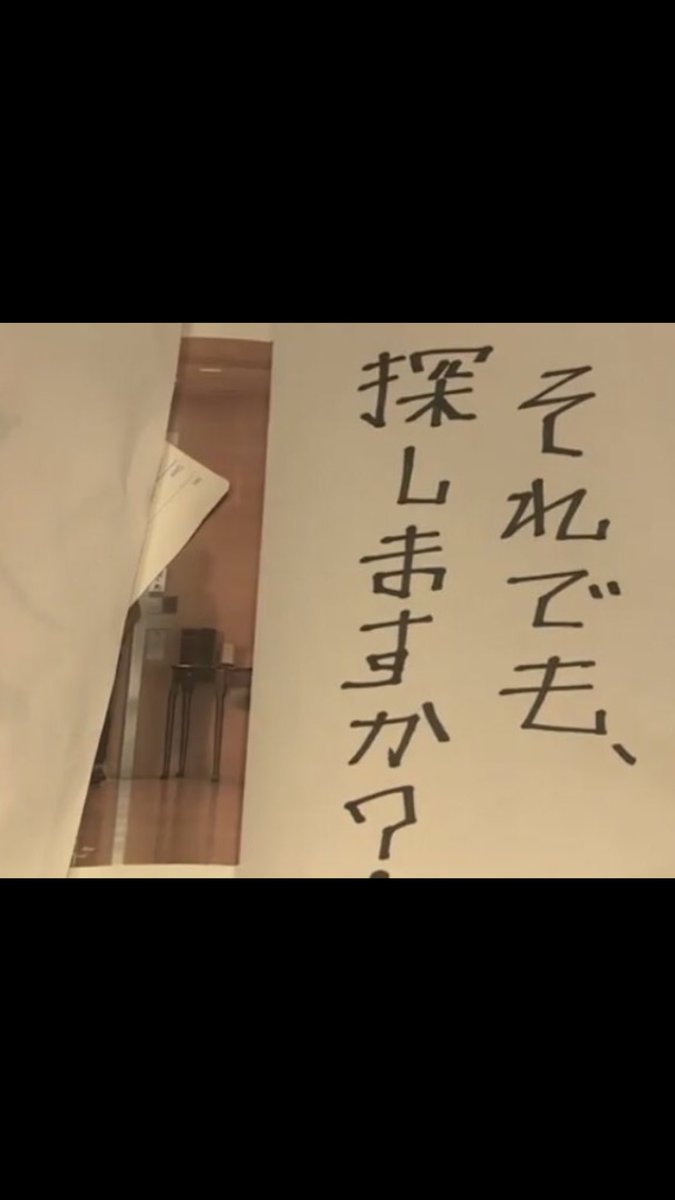 それでも、
探しますか?